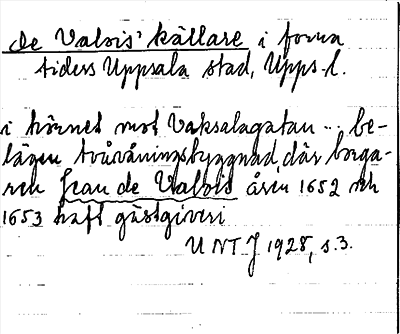 de Valois' källare i forna
tiders Uppsala stad, Upps. l.
i hörnet mot Vaksalagatan ... be-
lägen tvåvåningsbyggnad, där borga-
ren Jean de Valois åren 1652 och
1653 haft gästgiveri
UNT J 1928, s. 3.